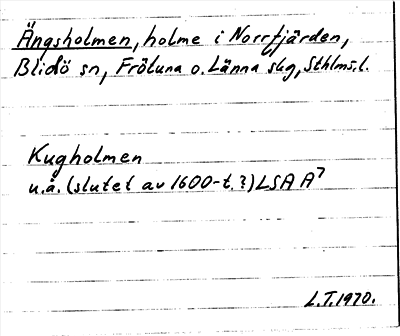 Ängsholmen, holme i Norrfjärden,
Blidö sn, Fröluna o. Länna skg, Sthlms l.
Kugholmen
u.å. (slutet av 1600-t.?) LSA A7
L.T. 1970.